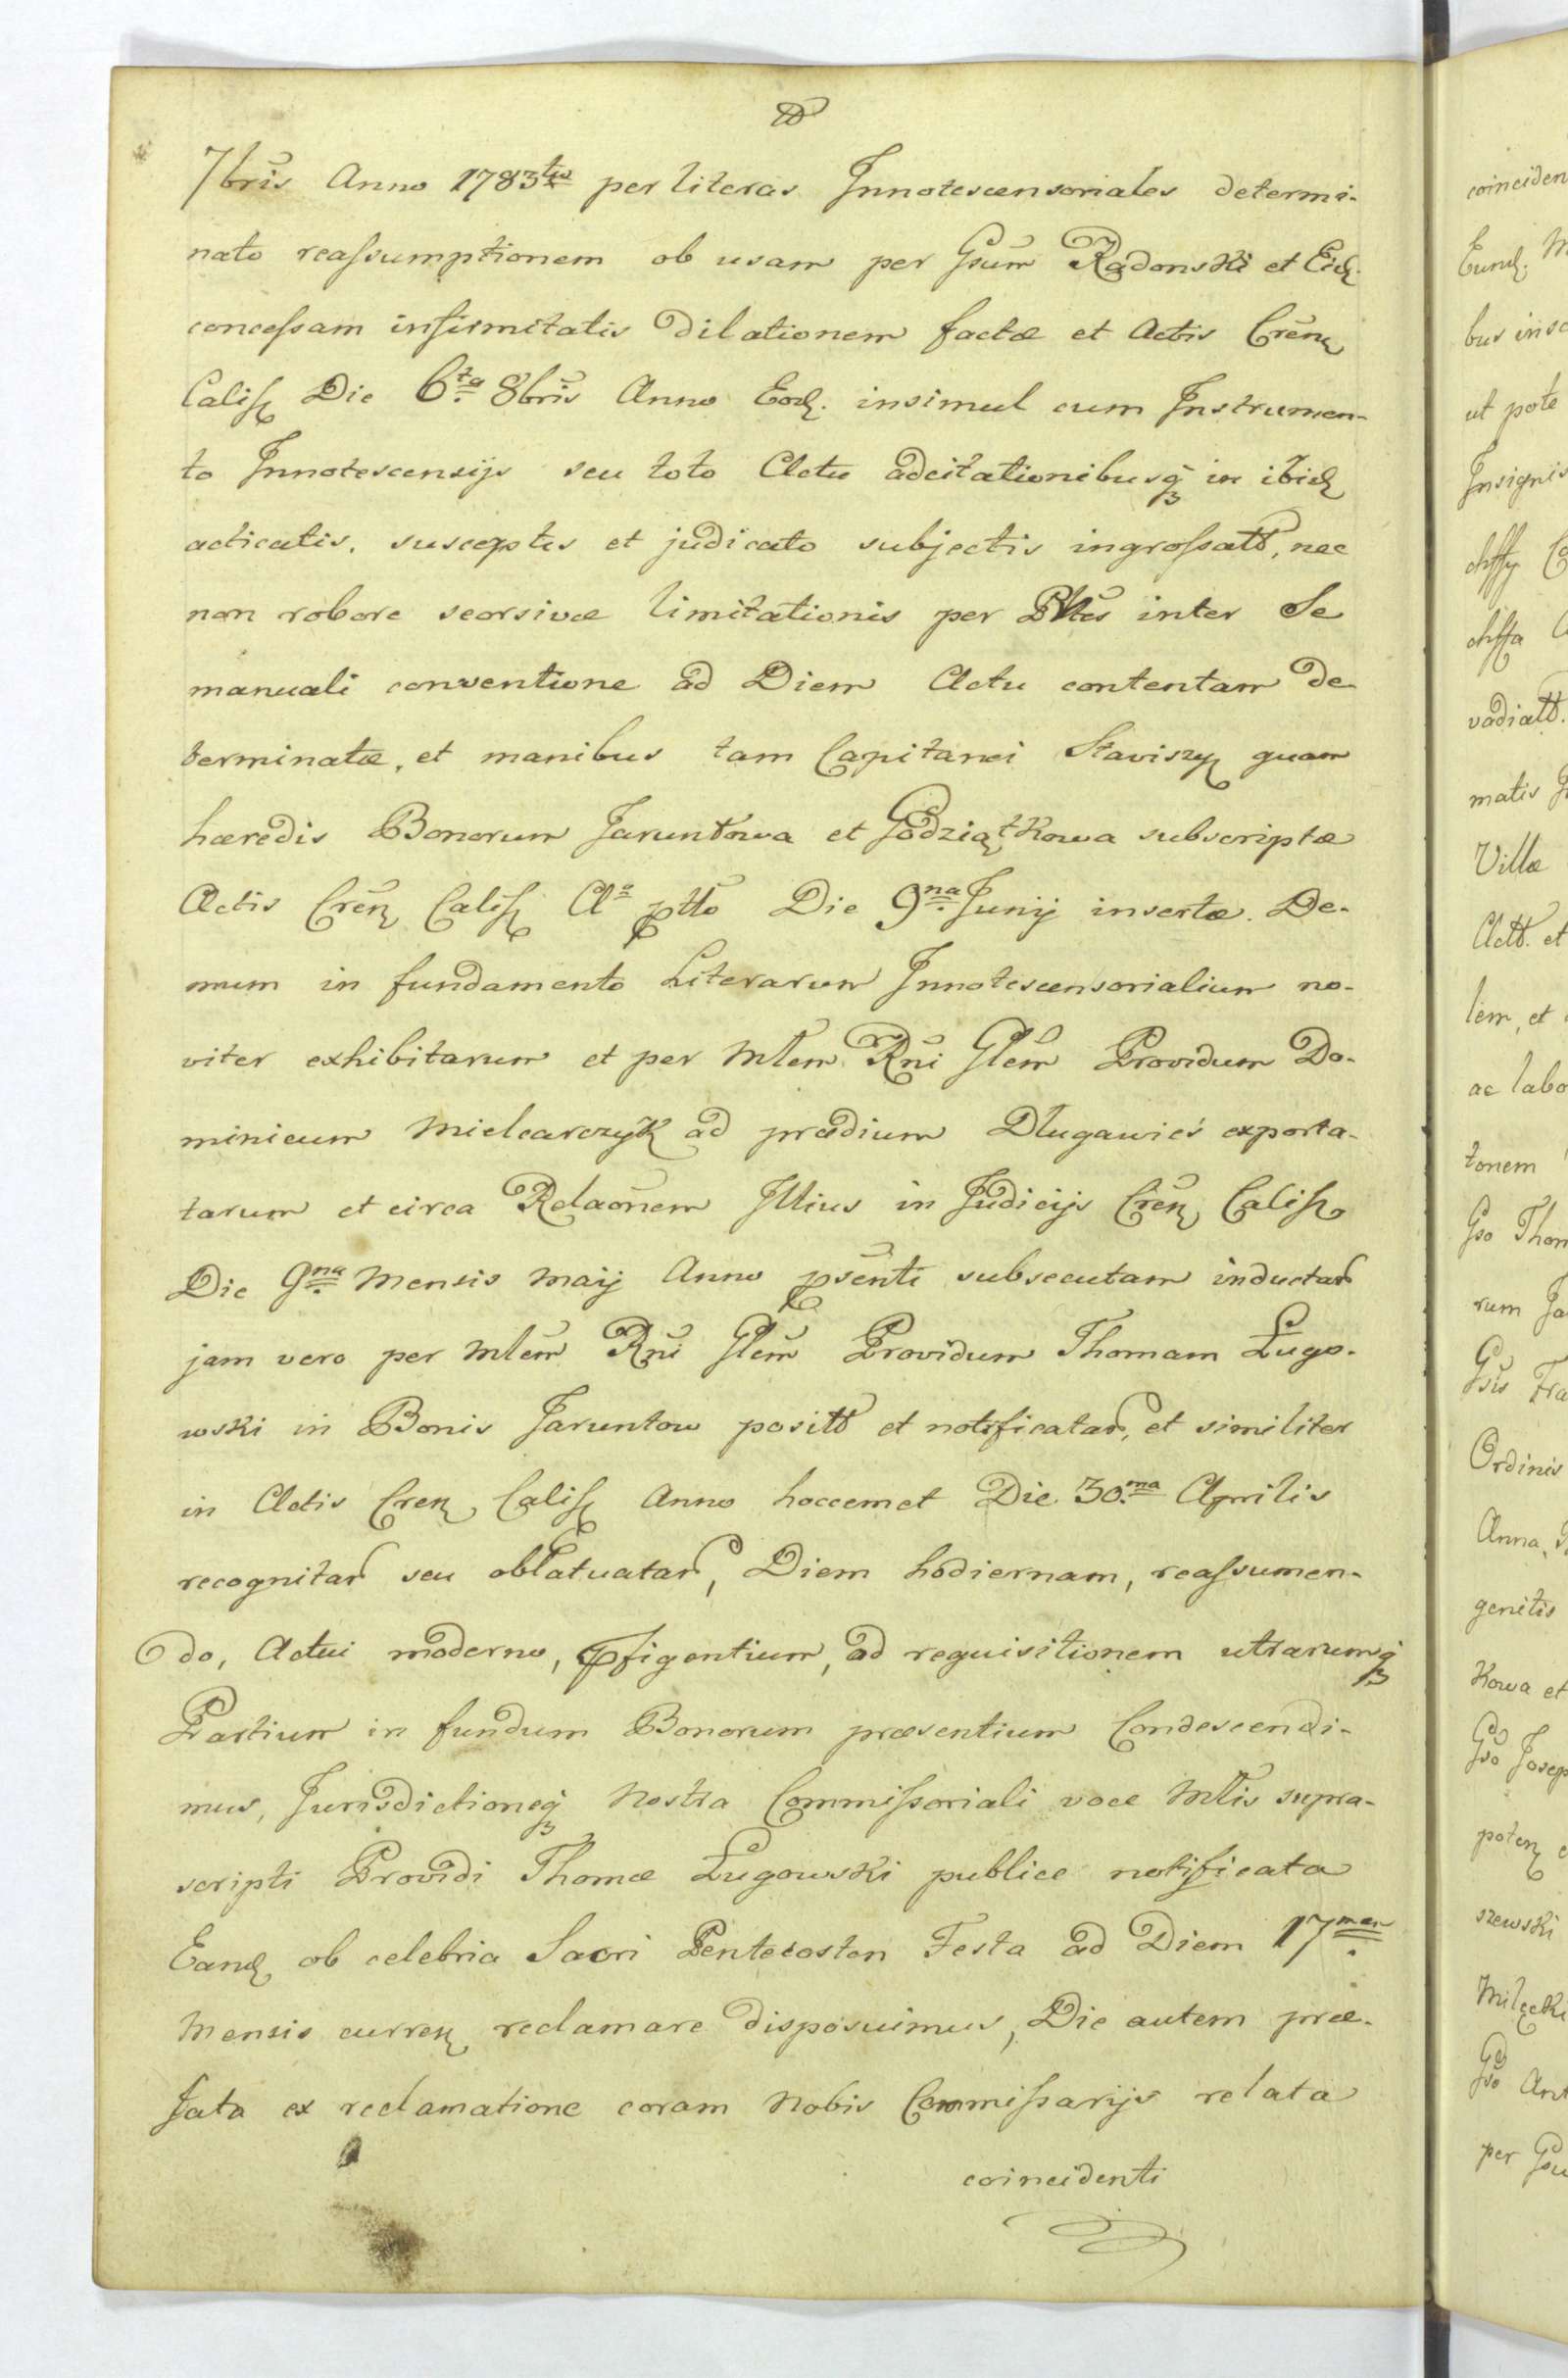 7bris Anno 1783tio per literas Innotescensoriales determi-
nato reassumptionem ob usam per Gsum Radonski et Eid.
concessam infirmitatis Dilationem factæ et Actis Cren
Calis Die 6ta 8bris Anno Eod. insimul cum Instrumen-
to Innotescensijs seu toto Actu adcitationibusq in ibid
acticatis, susceptis et judicato subjectis ingrossatt, nec
non robore seorsivæ limitationis per Ptes inter Se
manuali conventione ad Diem Actu contentam de-
terminatæ, et manibus tam Capitanei Staviszy quam
hæredis Bonorum Jaruntowa et Godziątkowa subscriptæ
Actis Cren Calis Aº ptto Die 9na Junij insertæ. De-
mum in fundamento Literarum Innotescensorialium no-
viter exhibitarum et per Mlem Rni Glem Providum Do-
minicum Mielcarczyk ad prædium Dlugawies exporta-
tarum et circa Relaonem Illius in Judicijs Cren Calis
Die 9na Mensis Maij Anno psenti subsecutam inductar
jam vero per Mlem Rni Glem Providum Thomam Ługo-
wski in Bonis Jaruntow positt et notificatar, et similiter
in Actis Cren Calis Anno hoccemet Die 30ma Aprilis
recognitar seu oblatuatar, Diem hodiernam, reassumen-
do, Actui moderno, pfigentium, ad requisitionem utrarumq
Partium in fundum Bonorum præsentium Condescendi-
mus, Jurisdictioneq Nostra Commissoriali voce Mlis supra-
scripti Providi Thomæ Ługowski publice notificata
Eand ob celebria Sacri Pentecosten Festa ad Diem 17mam
Mensis curren reclamare disposuimus, Die autem præ-
fata ex reclamatione coram Nobis Commissarijs relata
coincidenti